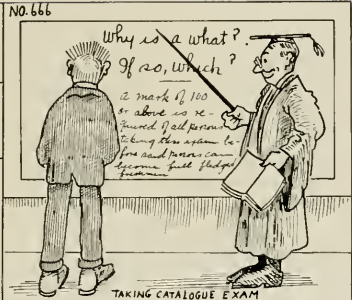 NO. 666
Why is a what?
If so, which?
a mark of 100
or above is re-
quired of all persons
taking this exam be-
fore said person can
become full fledged
freshmen
TAKING CATALOGUE EXAM